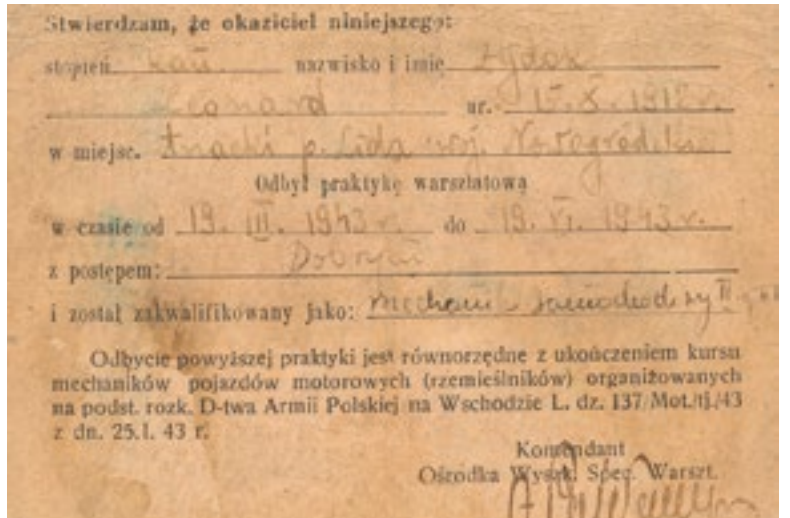 Stwierdzam, że okaziciel niniejszego:
stopień kan. nazwisko i imię Żydok
Leonard ur. 15.X.1912 r.
w miejsc. p. Lida woj. Nowogródzkie
Odbył praktykę warsztatową
w czasie od 19. III. 1943 r. do 19. VI. 1943 r.
z postępem: Dobrym
i został zakwalifikowany jako: mechanik samochodowy II
Odbycie powyższej praktyki jest równorzędne z ukończeniem kursu
mechaników pojazdów motorowych (rzemieślników) organizowanych
na podst. rozk. D-twa Armii Polskiej na Wschodzie L. dz. 137/Mot./tj./43
z dn. 25.I. 43 r.
Komendant
Ośrodka Wyszk. Spec. Warszt.